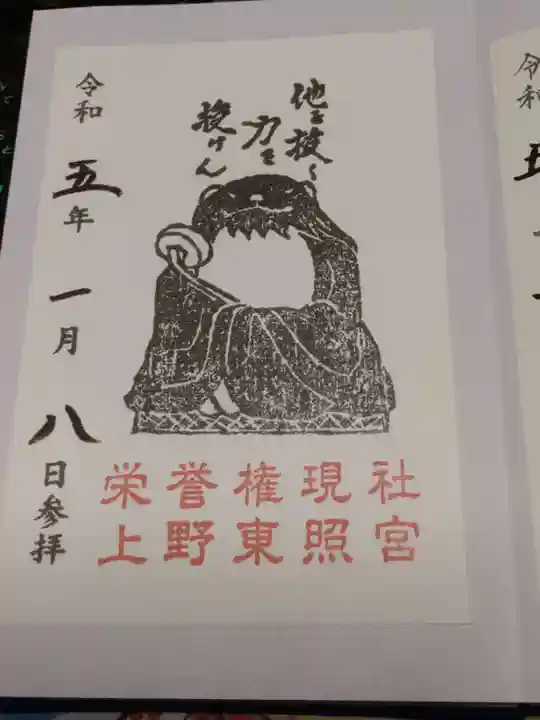 他を抜く
力を
授けん
令和五年一月八日参拝
栄誉権現社
上野東照宮
令和